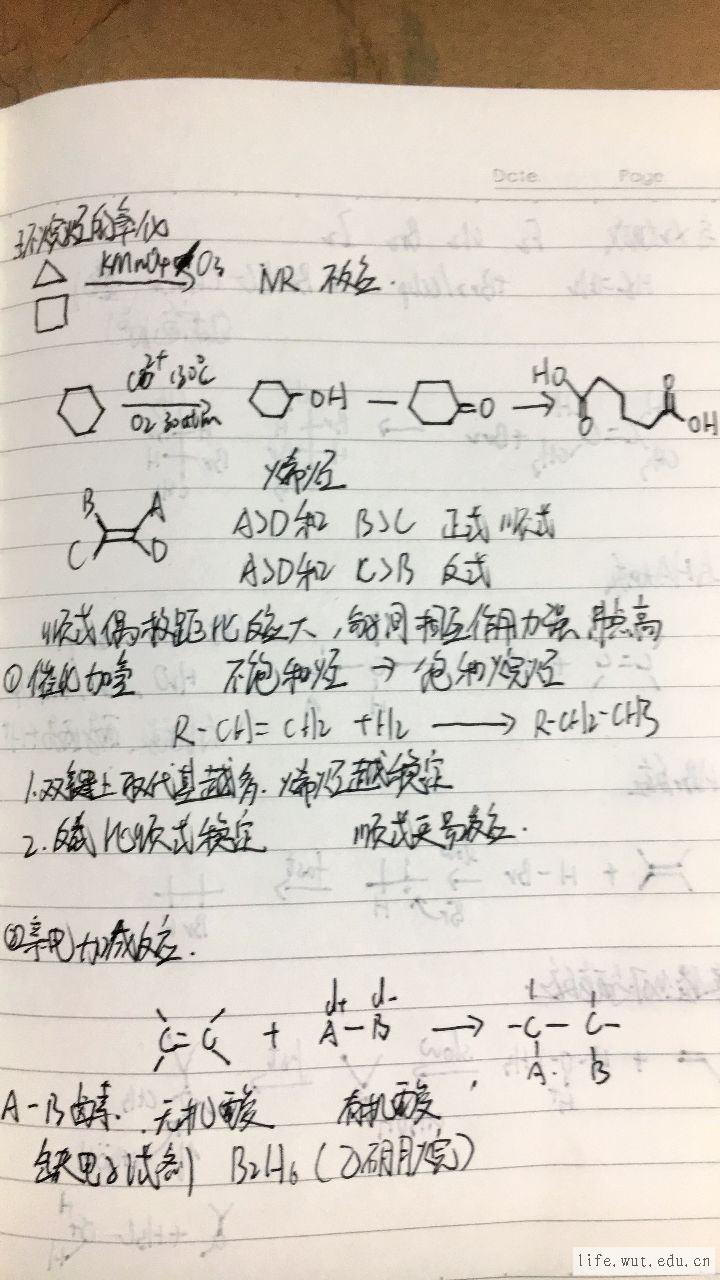 Date Page
3.环烷烃的氧化
KMnO4 O3
NR 不反应.
Co2+ 130℃
O2 30atm
OH
O
HO O O OH
烯烃
B A
C D
A>D和 B>C 正式 顺式
A>D和 C>B 反式
顺式偶极距比反应大,分子间相互作用力强 沸点高
①催化加氢 不饱和烃 → 饱和烷烃
R-CH=CH2 +H2 → R-CH2-CH3
1.双键上取代基越多.烯烃越稳定
2.反式比顺式稳定 顺式更易反应.
②亲电加成反应.
d+ d-
C=C + A-B → -C-C-
A. B
A-B 卤素. 无机酸 有机酸
缺电子试剂 B2H6(乙硼烷)
life.wut.edu.cn